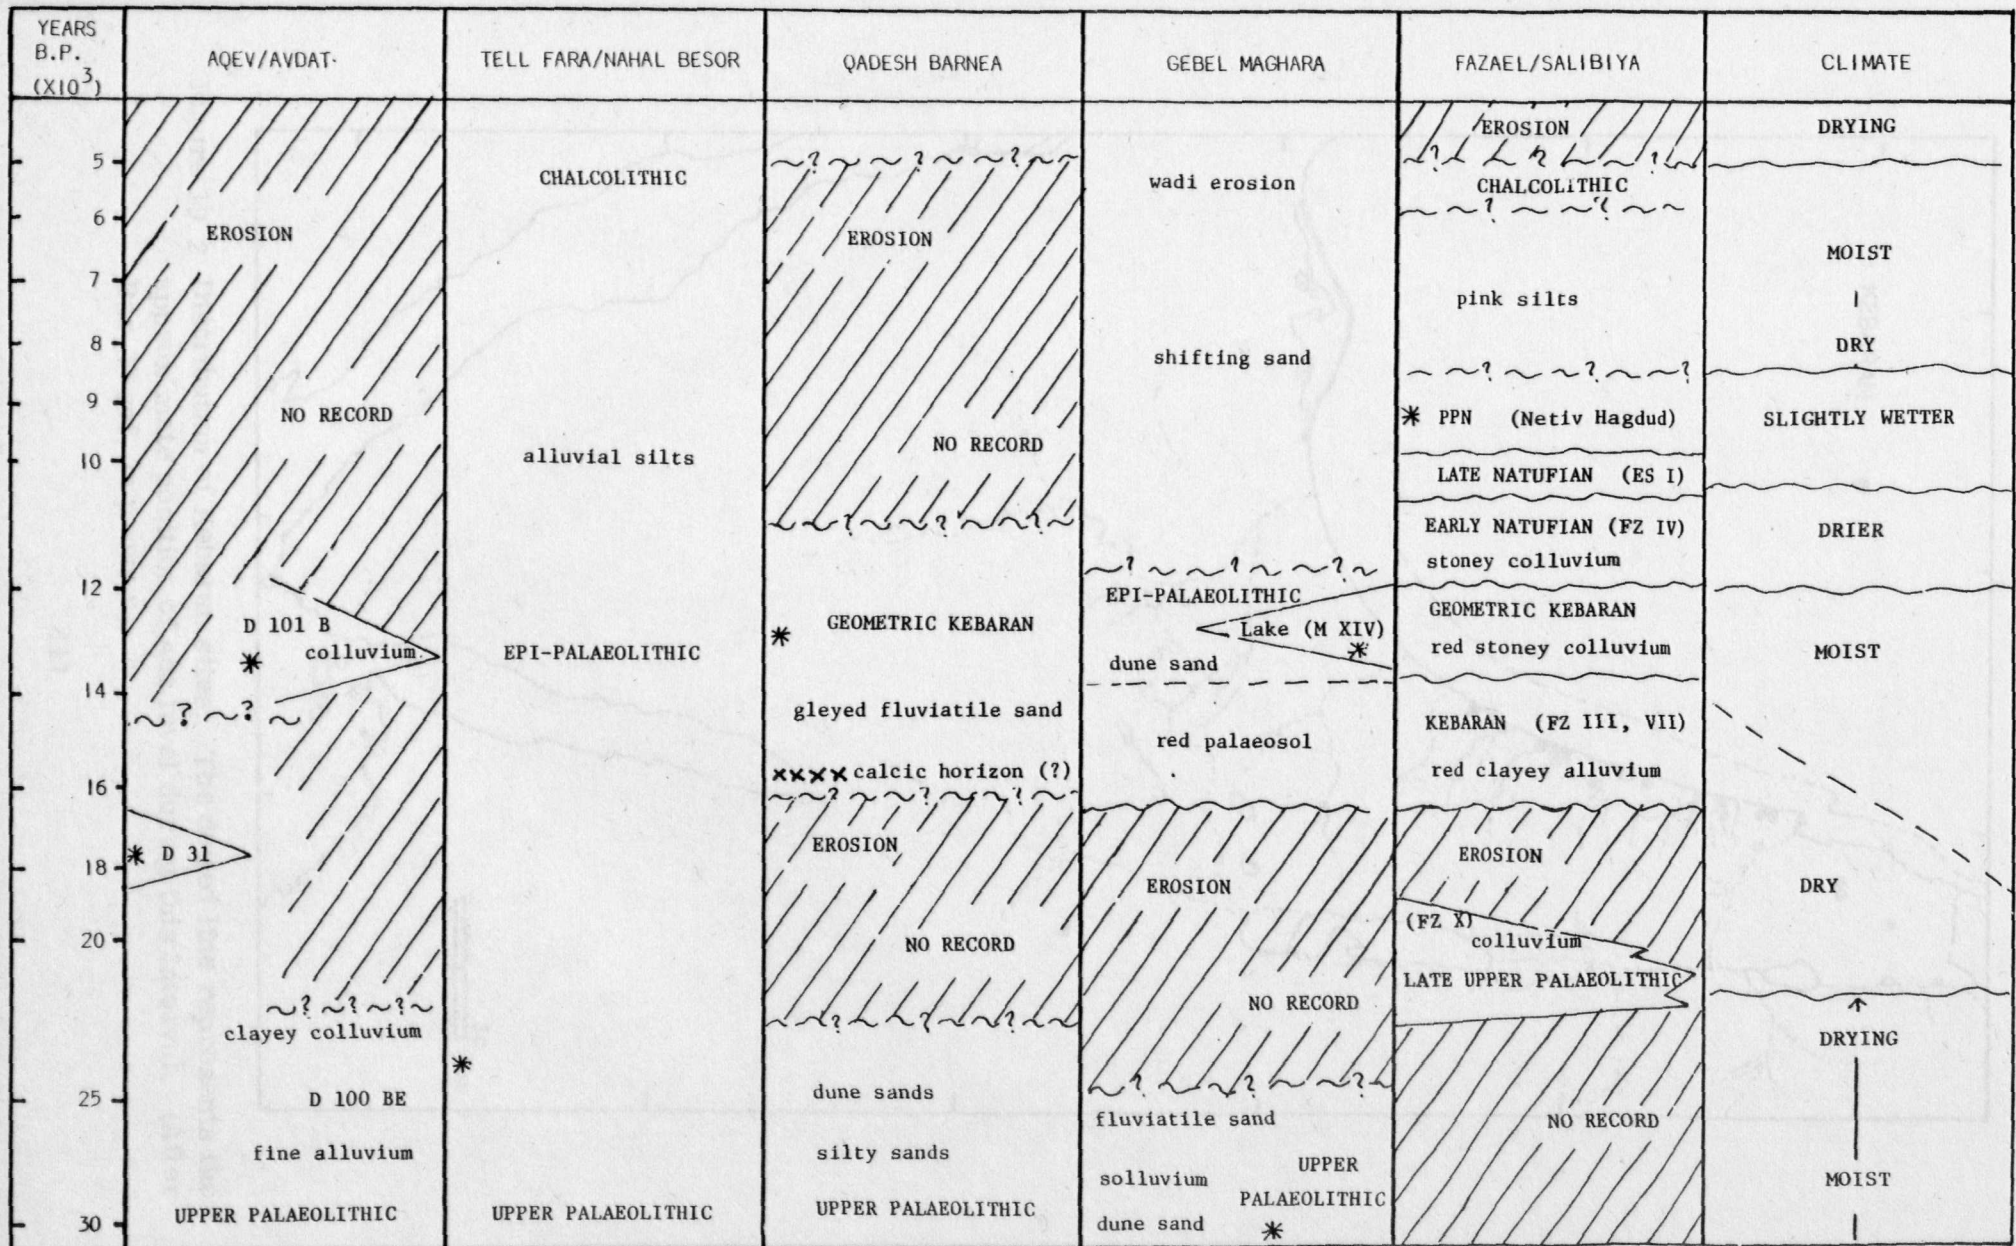 YEARS
B.P.
(X10³)
AQEV/AVDAT
TELL FARA/NAHAL BESOR
QADESH BARNEA
GEBEL MAGHARA
FAZAEL/SALIBIYA
CLIMATE
5
6
7
8
9
10
12
14
16
18
20
25
30
EROSION
NO RECORD
D 101 B
colluvium
*
~ ? ~ ?
* D 31
? ~ ? ~ ?
clayey colluvium
D 100 BE
fine alluvium
UPPER PALAEOLITHIC
CHALCOLITHIC
alluvial silts
EPI-PALAEOLITHIC
*
UPPER PALAEOLITHIC
? ? ?
EROSION
NO RECORD
? ? ?
* GEOMETRIC KEBARAN
gleyed fluviatile sand
xxxx calcic horizon (?)
? ? ?
EROSION
NO RECORD
? ? ?
dune sands
silty sands
UPPER PALAEOLITHIC
wadi erosion
shifting sand
? ? ?
EPI-PALAEOLITHIC
Lake (M XIV)
*
dune sand
red palaeosol
EROSION
NO RECORD
? ? ?
fluviatile sand
solluvium
UPPER
PALAEOLITHIC
dune sand
*
EROSION
? ? ?
CHALCOLITHIC
? ?
pink silts
? ? ?
* PPN (Netiv Hagdud)
LATE NATUFIAN (ES I)
EARLY NATUFIAN (FZ IV)
stoney colluvium
GEOMETRIC KEBARAN
red stoney colluvium
KEBARAN (FZ III, VII)
red clayey alluvium
EROSION
(FZ X)
colluvium
LATE UPPER PALAEOLITHIC
NO RECORD
DRYING
MOIST
DRY
SLIGHTLY WETTER
DRIER
MOIST
DRY
DRYING
MOIST